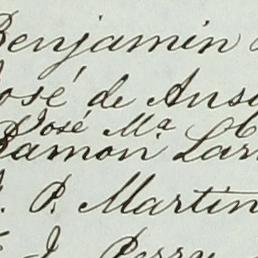 Benjamin
José de Ans
José Mª
Ramon Lar
P. Martin
J. Perry